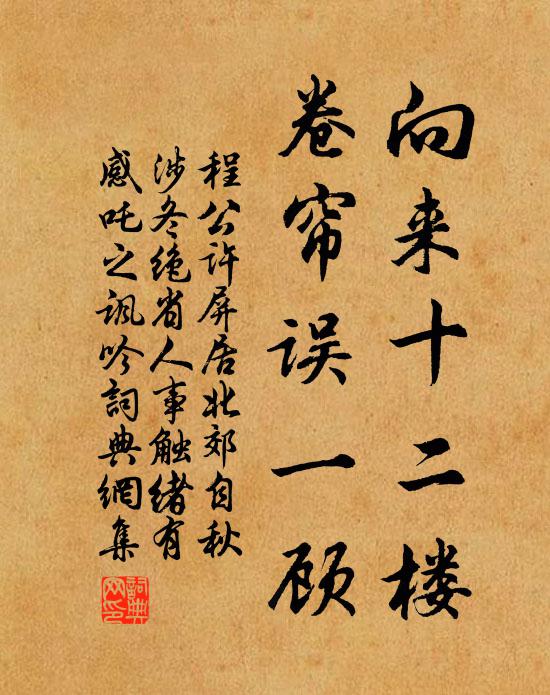 向来十二楼
卷帘误一顾
程公许屏居北郊自秋
涉冬绝省人事触绪有
感吒之讽吟詞典網集
詞典网印